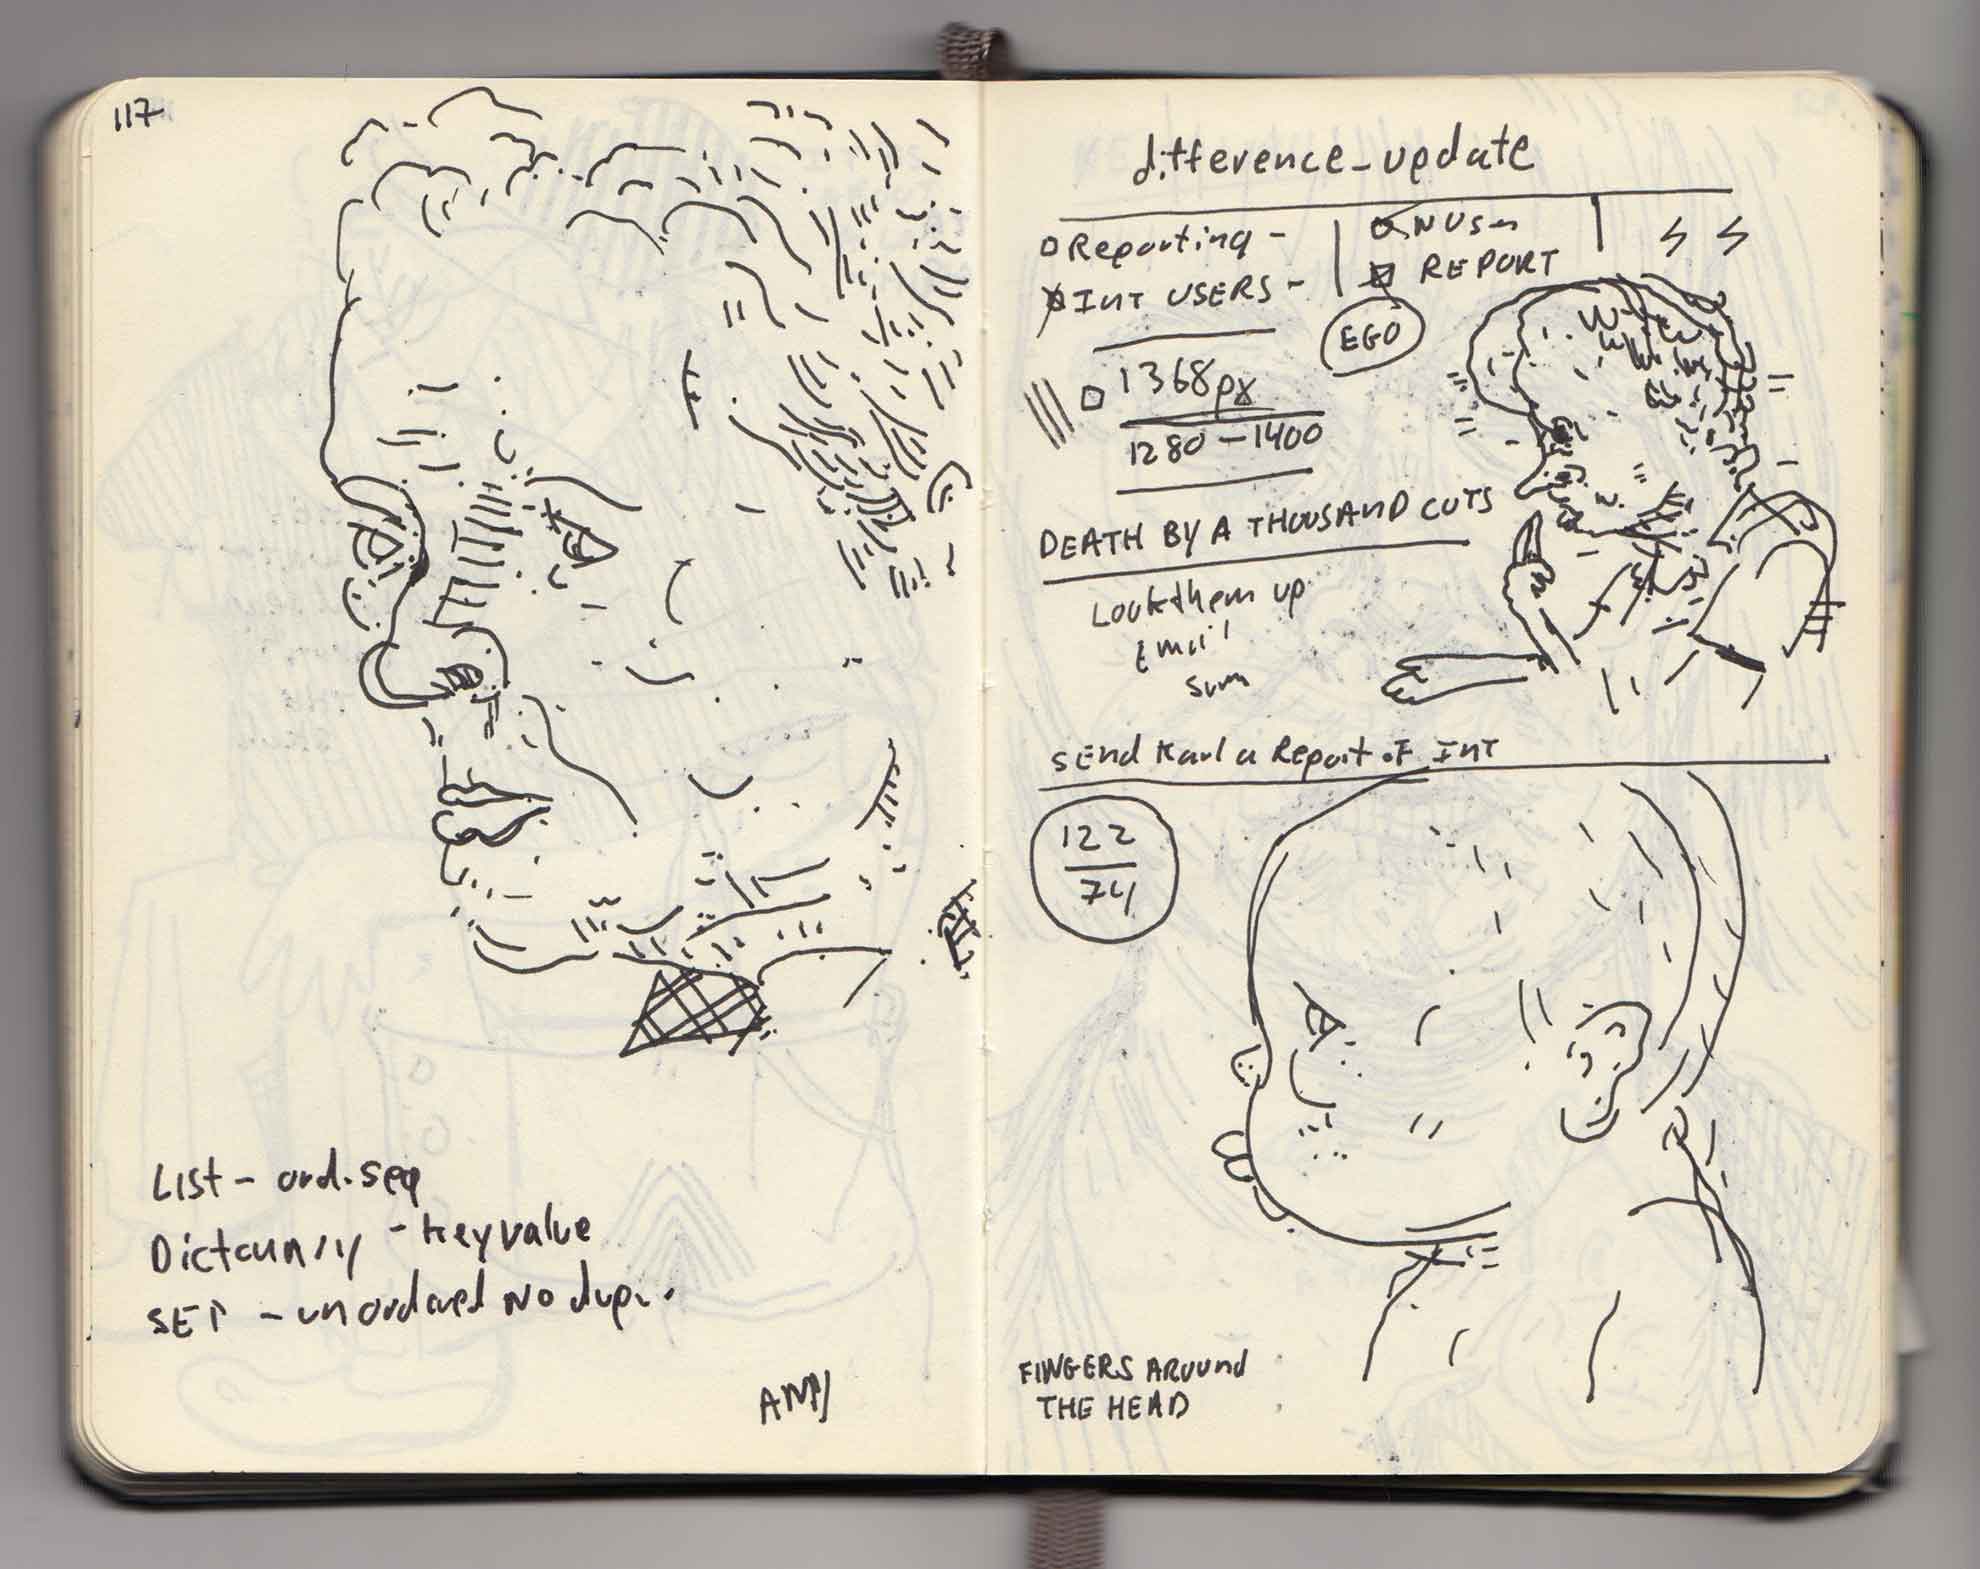 117
List - ord. seq
Dictounary - key value
SET - unordered No dupl.
difference_update
Reporting -
INT USERS -
REPORT
EGO
1368px
1280 - 1400
DEATH BY A THOUSAND CUTS
Look them up
Email
sum
SEnd Karl a Report of InT
122
74
FINGERS AROUnd
THE HEAD